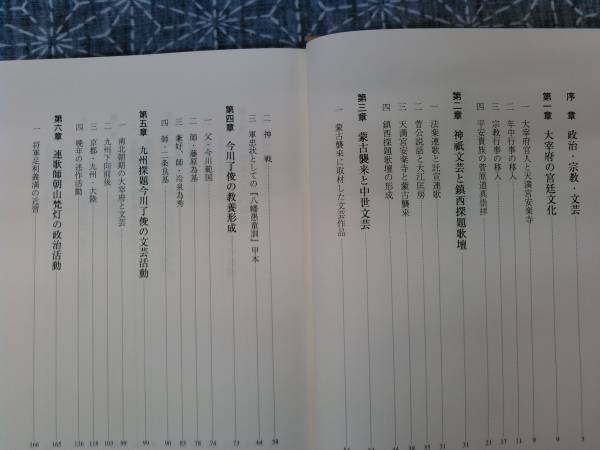 序章 政治・宗教・文芸 3
第一章 大宰府の宮廷文化 9
一 大宰府官人と天満宮安楽寺 9
二 年中行事の移入 11
三 宗教行事の移入 17
四 平安貴族の菅原道真崇拝 23
第二章 神祇文芸と鎮西探題歌壇 31
一 法楽連歌と託宣連歌 31
二 菅公説話と大江匡房 35
三 天満宮安楽寺と蒙古襲来 39
四 鎮西探題歌壇の形成
第三章 蒙古襲来と中世文芸
一 蒙古襲来に取材した文芸作品
二 神戦 58
三 軍忠状としての『八幡愚童訓』甲本 64
第四章 今川了俊の教養形成 73
一 父・今川範国 74
二 師・藤原為基 78
三 兼好、師・冷泉為秀 83
四 師・二条良基 90
第五章 九州探題今川了俊の文芸活動 99
一 南北朝期の大宰府と文芸 99
二 九州下向前後 103
三 京都・九州・大陸 118
四 晩年の述作活動 136
第六章 連歌師朝山梵灯の政治活動 165
一 将軍足利義満の近習 166